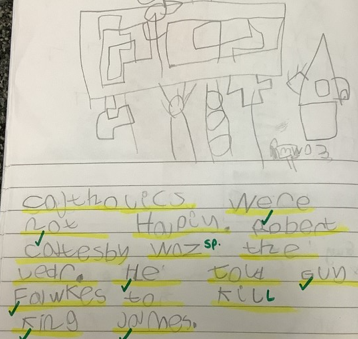 cathovlecs were
not Happy. dobert
cattesby woz sp. the
ledr. He tould gun
Fawkes to KiLL
King James.